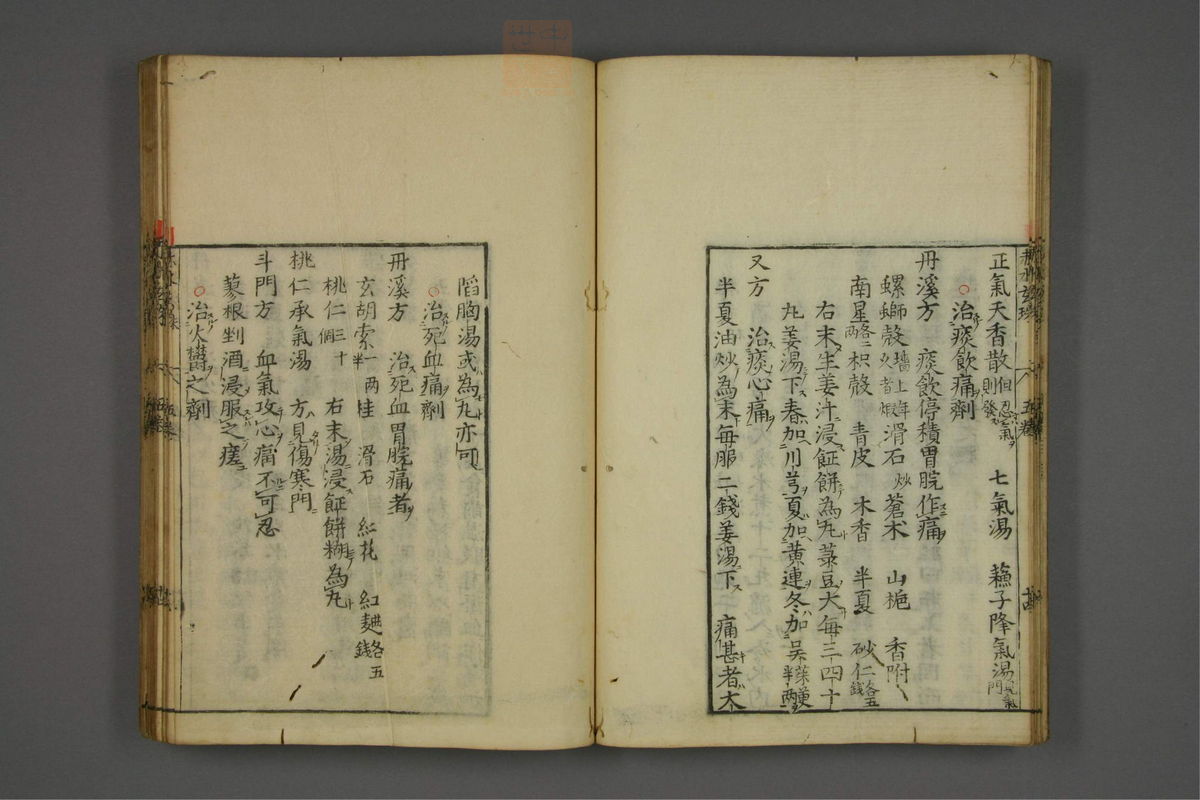 正氣天香散 但忍氣則發 七氣湯 蘓子降氣湯
治痰飲痛劑
丹溪方 痰飲停積胃脘作痛
螺螄殼 墻上年久者煅 滑石炒 蒼术 山梔 香附
南星各二兩 枳殼 青皮 木香 半夏 砂仁各五錢
右末生姜汁浸䬳餅為丸菉豆大每三四十
丸姜湯下春加川芎夏加黄連冬加吳茱萸半兩
又方 治痰心痛
半夏油炒為末每服二錢姜湯下 痛甚者大
䧟胸湯或為丸亦可
治死血痛劑
丹溪方 治死血胃脘痛者
玄胡索一兩半 桂 滑石 紅花 紅麹各五錢
桃仁三十個 右末湯浸䬳餅糊為丸
桃仁承氣湯 方見傷寒門
斗門方 血氣攻心痛不可忍
蓼根剉酒浸服之瘥
治火鬱之劑